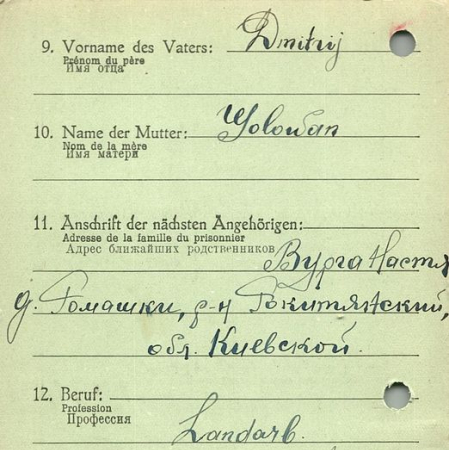 9. Vorname des Vaters: Dmitrij
Prénom du père
Имя отца
10. Name der Mutter:
Nom de la mère
Имя матери
11. Anschrift der nächsten Angehörigen:
Adresse de la famille du prisonnier
Адрес ближайших родственников
Вурга Настя
д. Ромашки, р-н Рокитянский,
обл. Киевской.
12. Beruf:
Profession
Профессия
Landarb.